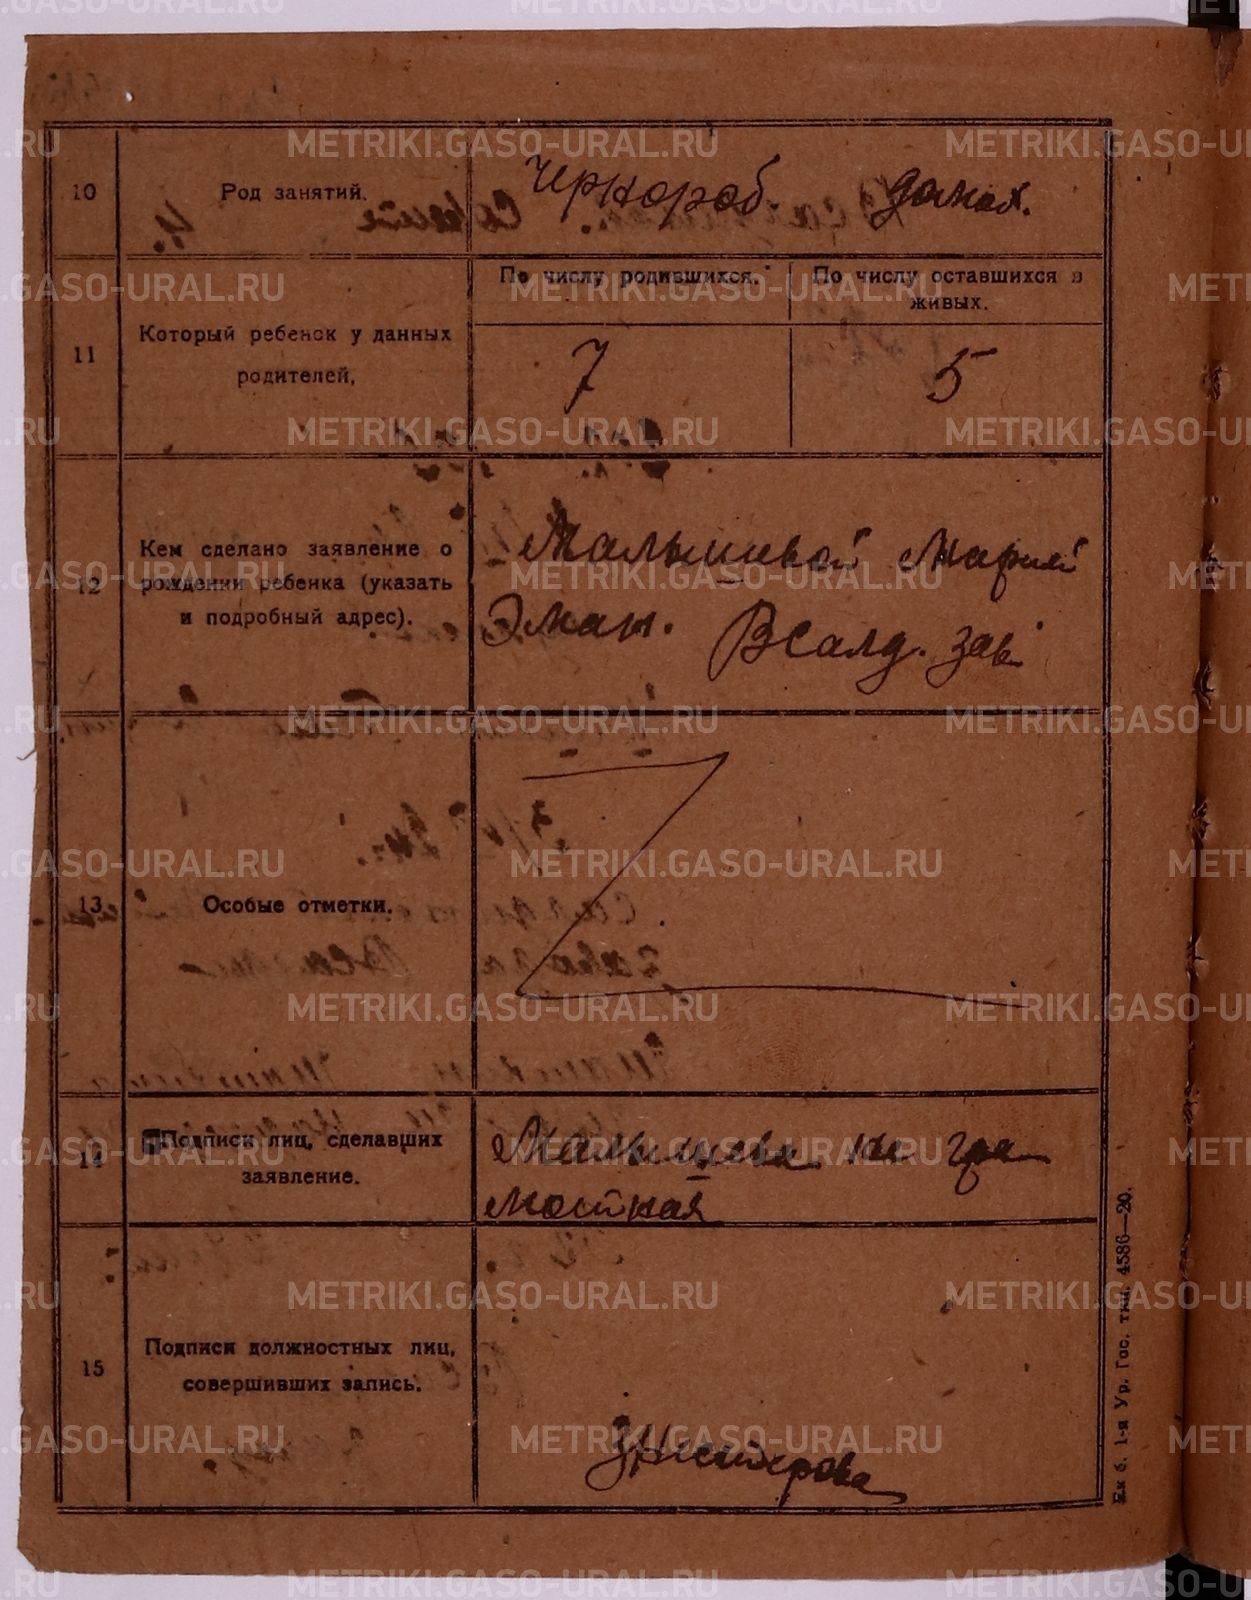 10
Род занятий.
Чернораб. домох.
11
Который ребенок у данных
родителей.
По числу родившихся.
По числу оставшихся в
живых.
7
5
12
Кем сделано заявление о
рождении ребенка (указать
и подробный адрес).
Малышевой Марией
Эман. ВСалд. зав
13
Особые отметки.
14
Подписи лиц, сделавших
заявление.
Малышева не гра
мотная
15
Подписи должностных лиц,
совершивших запись.
Ек б. 1-я Ур. Гос. тип. 4586—20.
METRIKI.GASO-URAL.RU